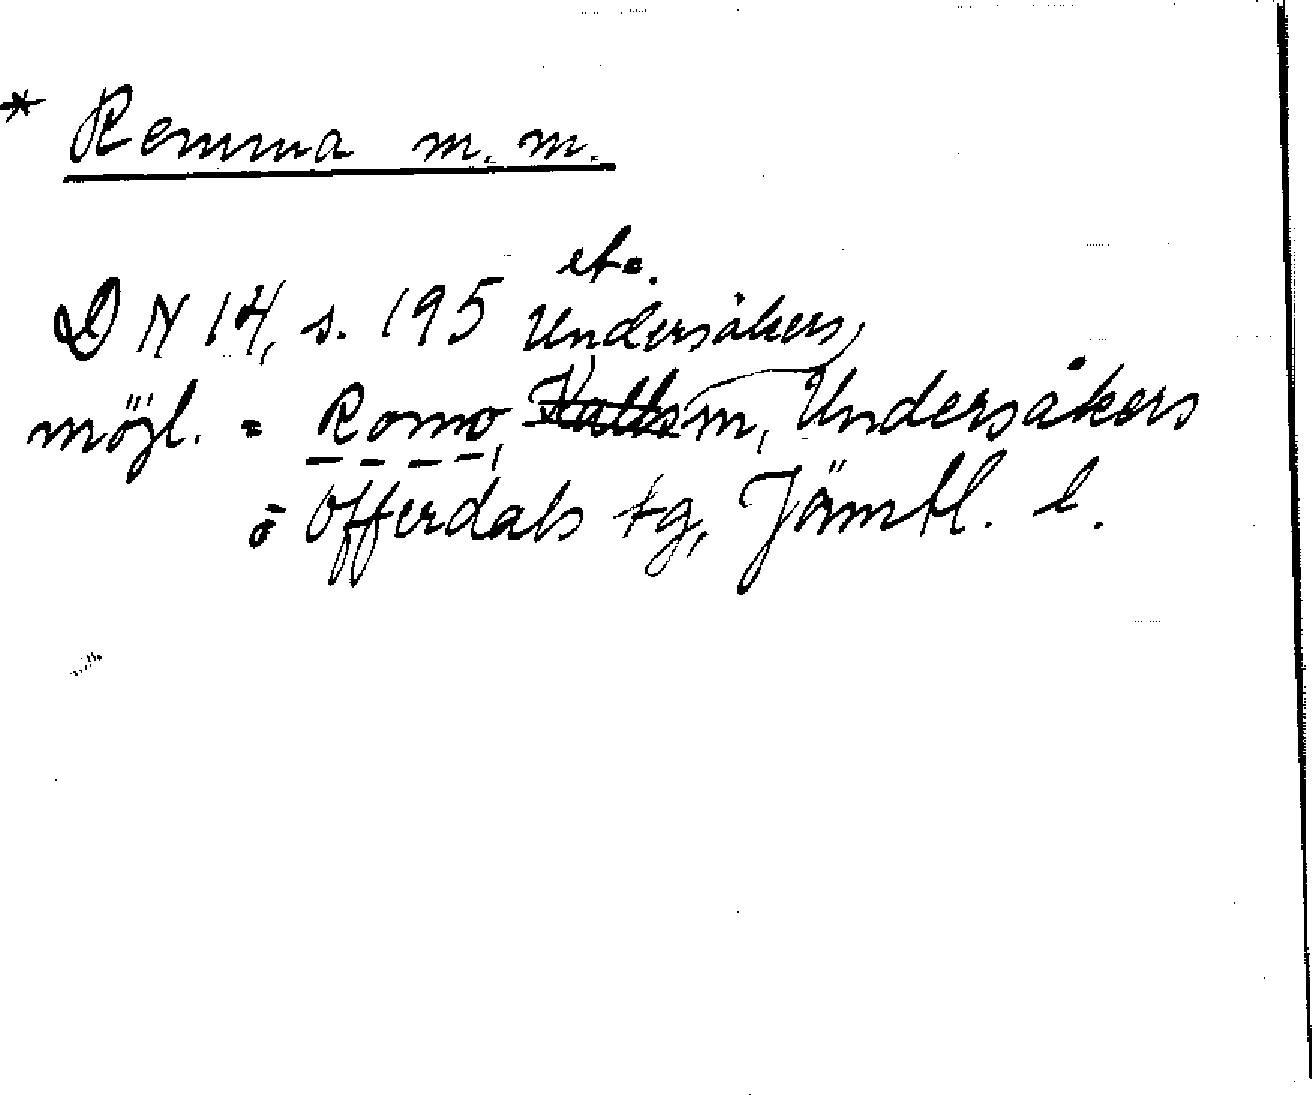 * Remma m. m.
etc.
DN 14, s. 195 Undersåkers
mögl. = Romo, Kalls sn, Undersåkers
o Offerdals tg, Jämtl. l.